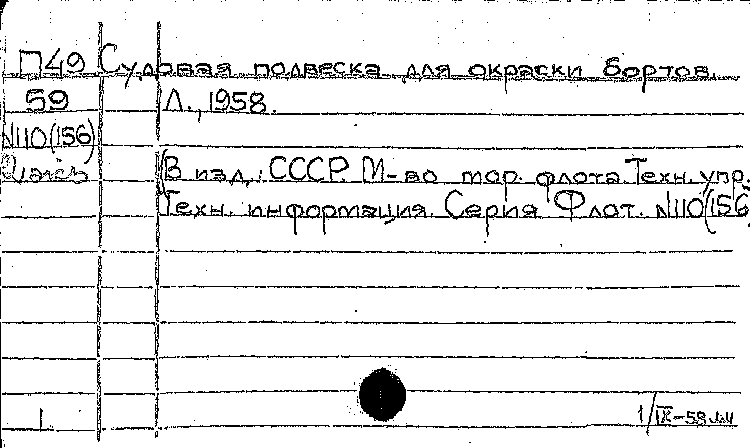 П49 Судовая подвеска для окраски бортов.
59 Л., 1958.
N110(156)
(В изд.: СССР. М-во мор. флота. Техн. упр.
Техн. информация. Серия Флот. N110(156
1
1/IX-58